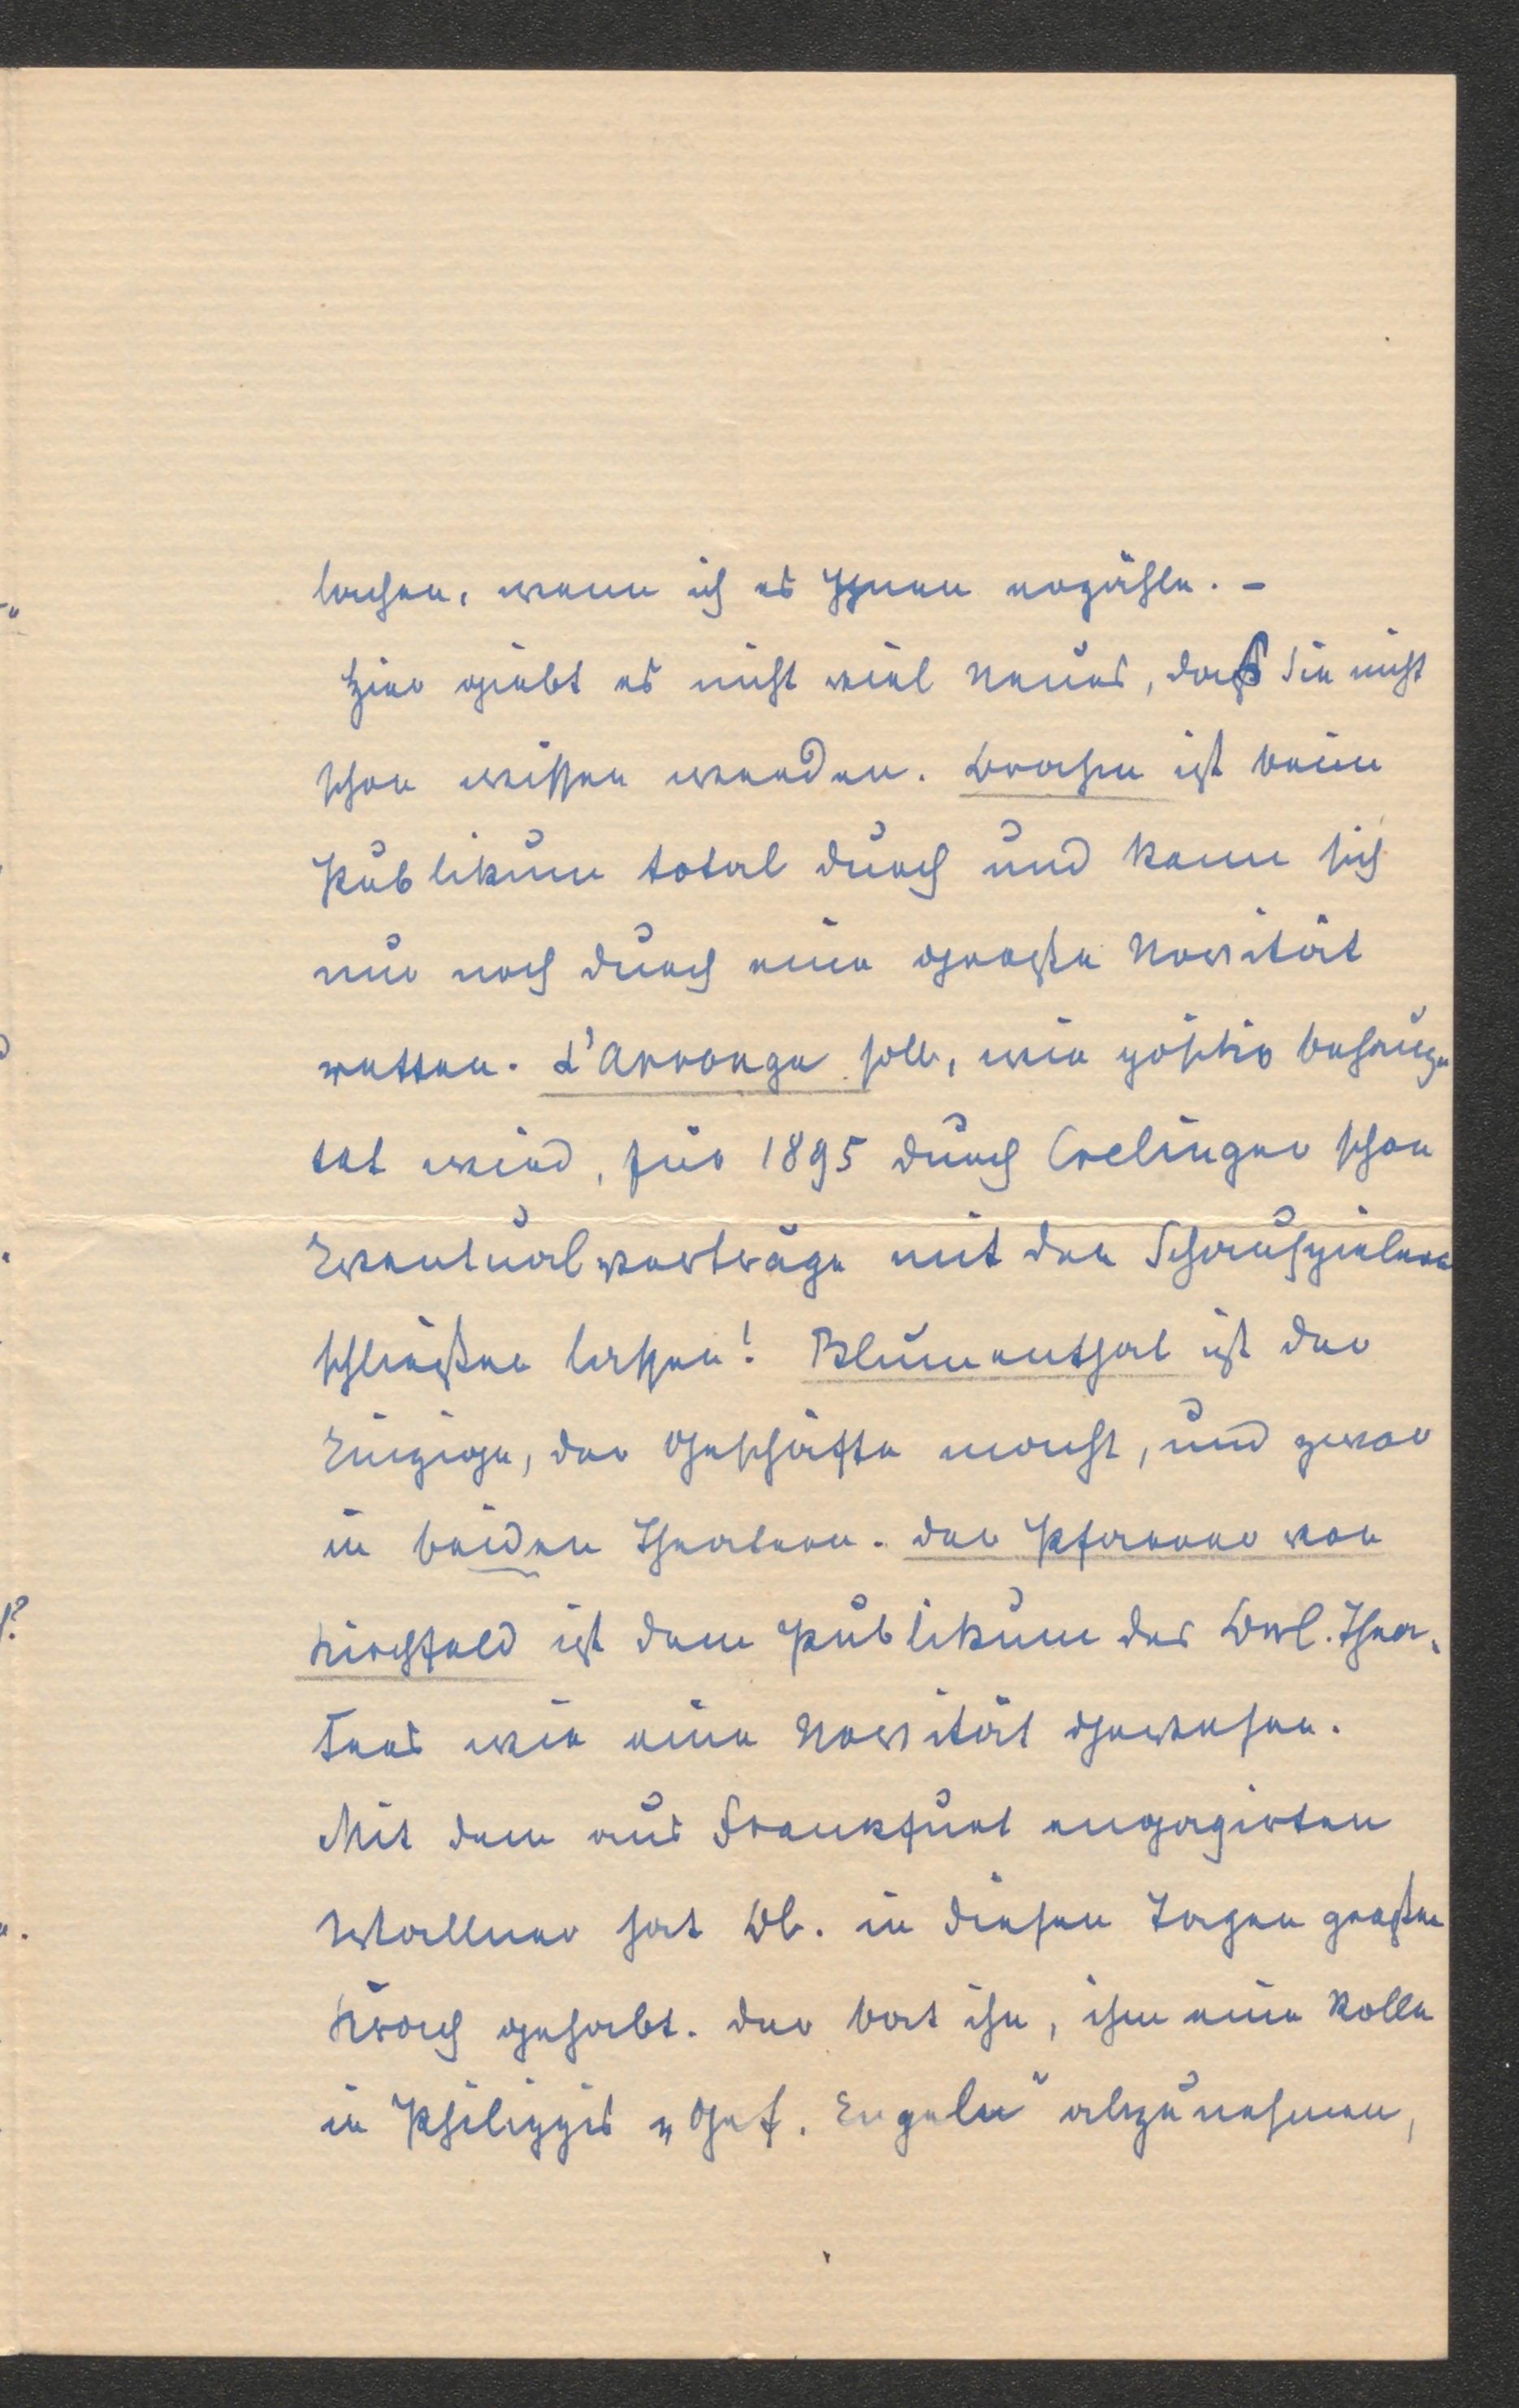 lachen, wenn ich es Ihnen erzähle. –
Hier giebt es nicht viel Neues, daß Sie nicht
schon wissen werden. Brahm ist beim
Publikum total durch und kann sich
nur noch durch eine große Novität
retten. L'Arronge soll, wie positiv behaup-
tet wird, für 1895 durch Crelinger schon
Eventualverträge mit den Schauspielern
schließen lassen! Blumenthal ist der
Einzige, der Geschäfte macht, und zwar
in beiden Theatern. Der Pfarrer von
Kirchfeld ist dem Publikum des Berl. Thea-
ters wie eine Novität gewesen.
Mit dem aus Frankfurt engagirten
Wallner hat Bl. in diesen Tagen großen
Krach gehabt. Der bat ihn, ihm eine Rolle
in Philippis „Gef. Engeln" abzunehmen,